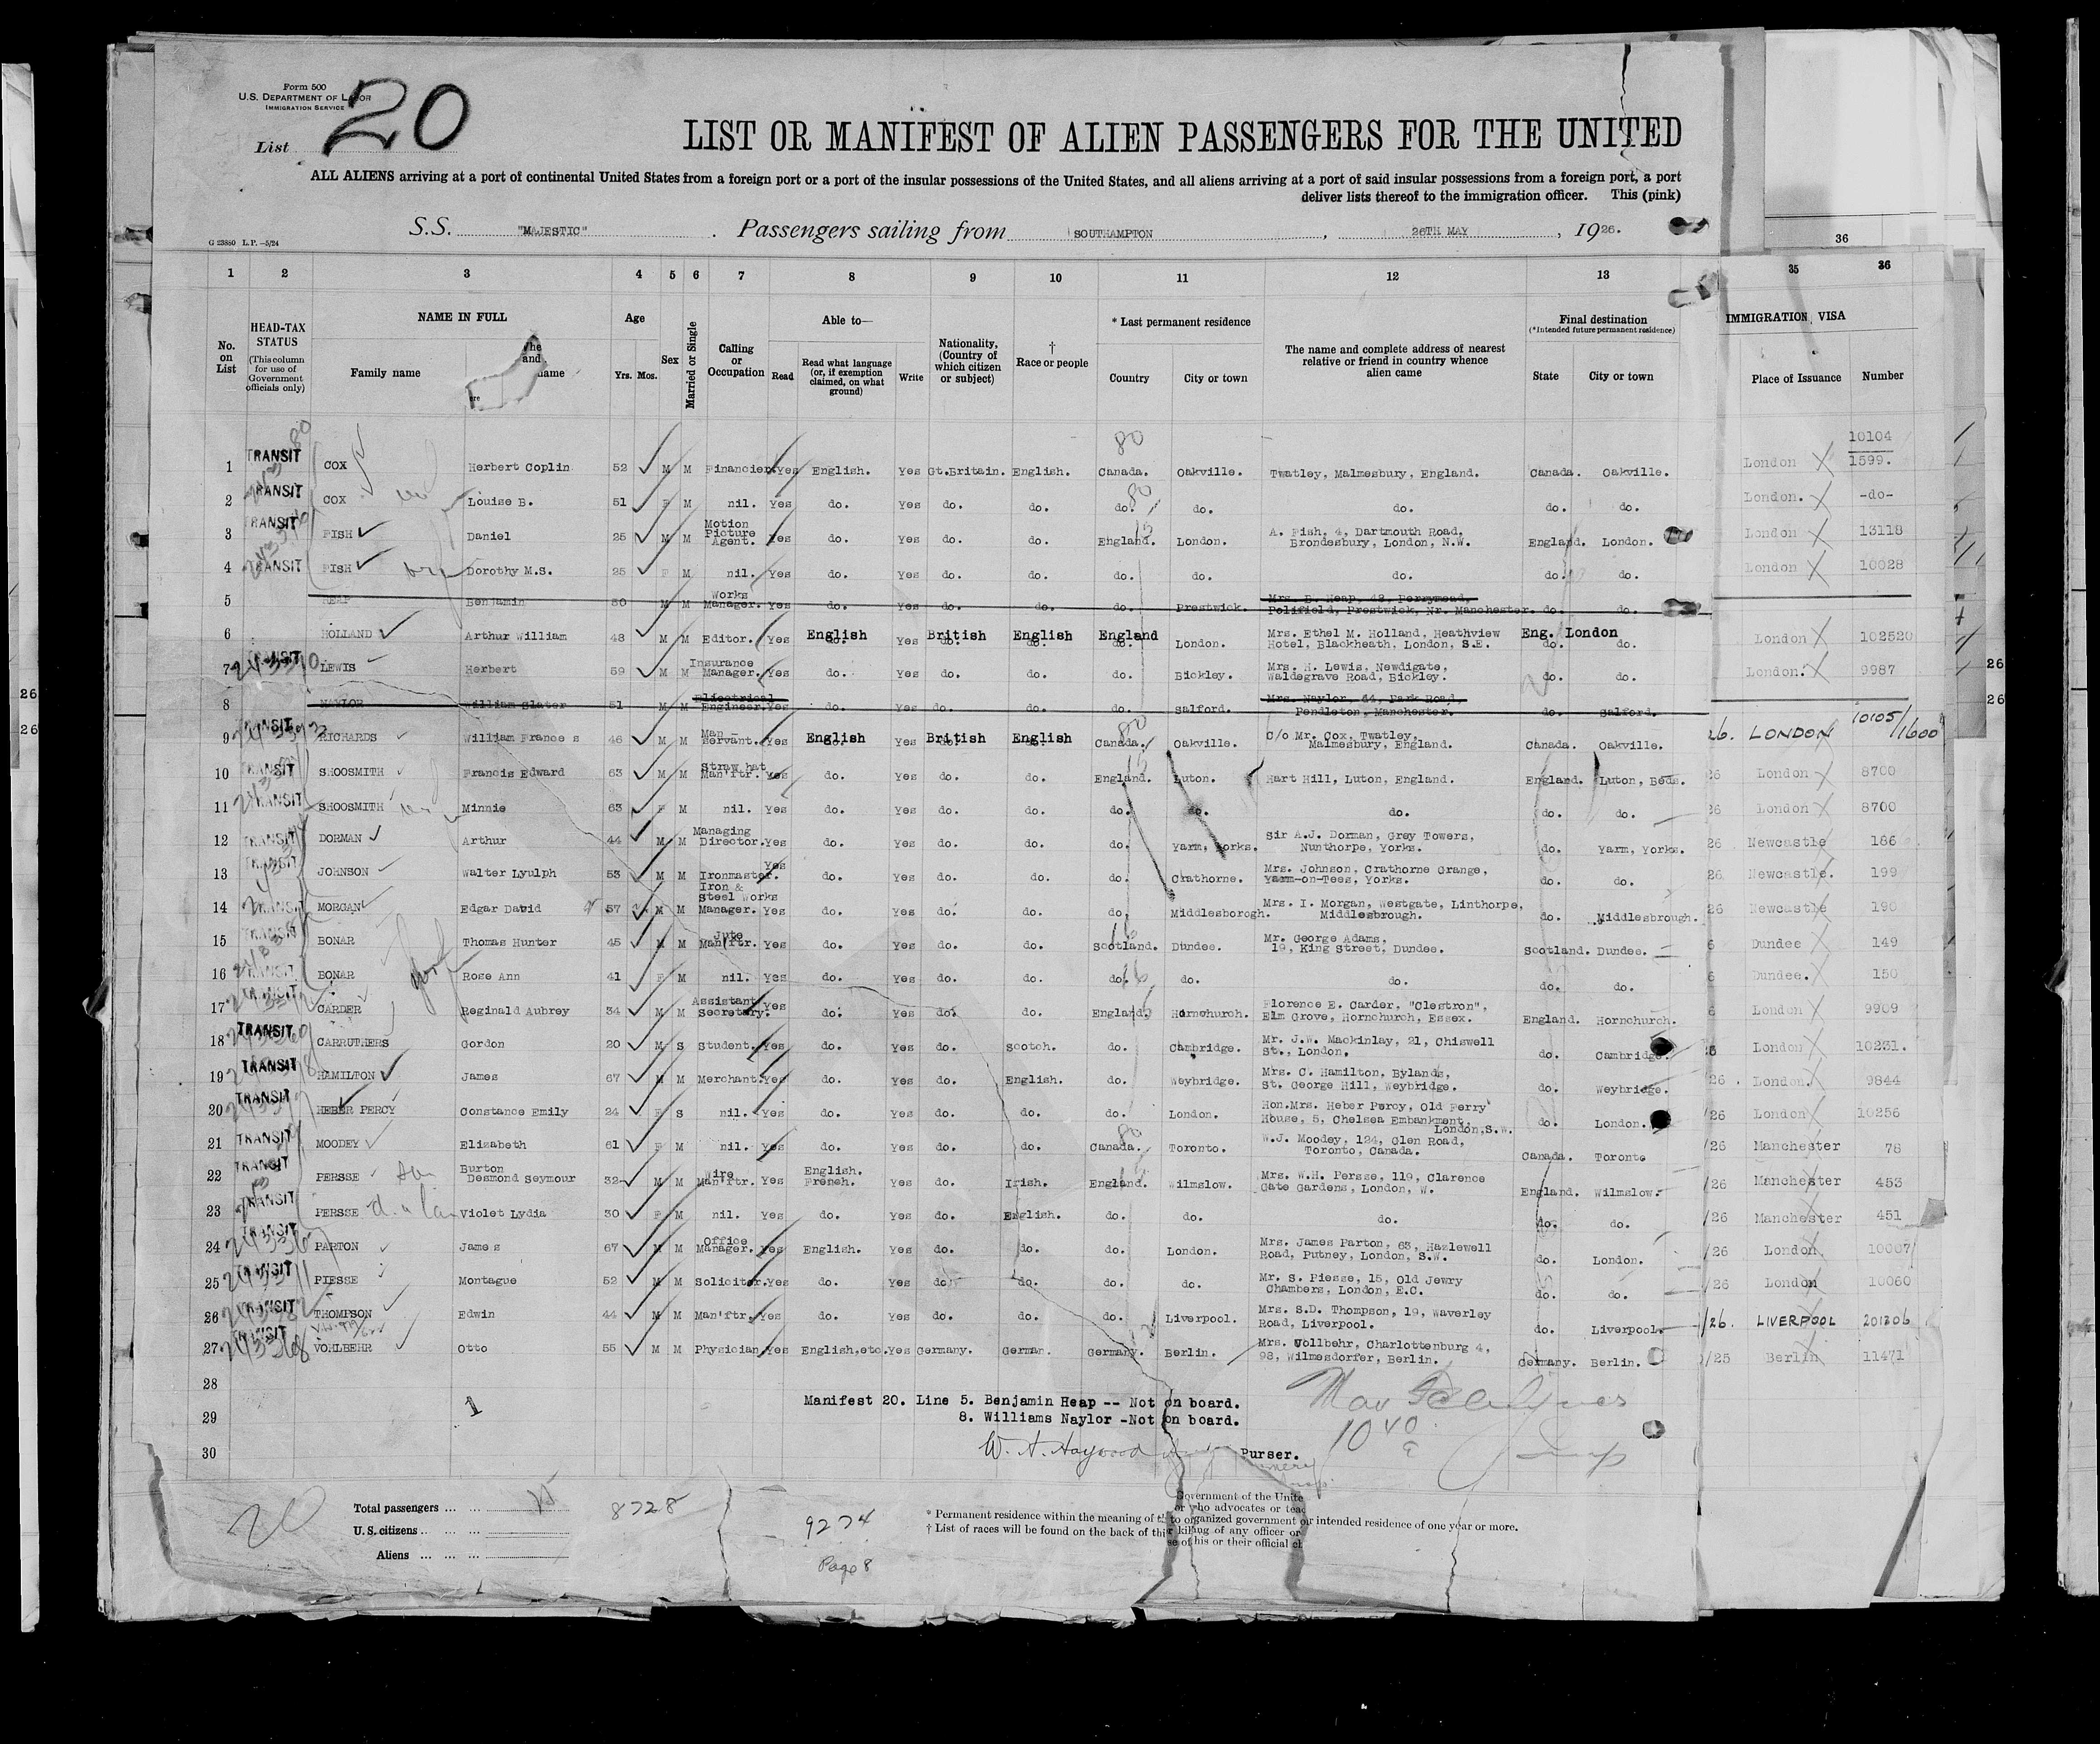 Form 500
U.S. DEPARTMENT OF LABOR
IMMIGRATION SERVICE
List 20
LIST OR MANIFEST OF ALIEN PASSENGERS FOR THE UNITED
ALL ALIENS arriving at a port of continental United States from a foreign port or a port of the insular possessions of the United States, and all aliens arriving at a port of said insular possessions from a foreign port, a port
deliver lists thereof to the immigration officer. This (pink)
S.S. "MAJESTIC" . Passengers sailing from SOUTHAMPTON , 26TH MAY , 1926.
G 23880 L.P.—5/24
36
1 2 3 4 5 6 7 8 9 10 11 12 13 35 36
No. on List
HEAD-TAX STATUS
(This column for use of Government officials only)
NAME IN FULL
Family name
Age
Yrs. Mos.
Sex
Married or Single
Calling or Occupation
Able to—
Read
Read what language (or, if exemption claimed, on what ground)
Write
Nationality, (Country of which citizen or subject)
† Race or people
* Last permanent residence
Country
City or town
The name and complete address of nearest relative or friend in country whence alien came
Final destination
(*Intended future permanent residence)
State
City or town
IMMIGRATION VISA
Place of Issuance
Number
1 TRANSIT COX Herbert Coplin 52 M M Financier. Yes English. Yes Gt.Britain. English. Canada. Oakville. Twatley, Malmesbury, England. Canada. Oakville. London 10104 1599.
2 TRANSIT COX Louise B. 51 F M nil. Yes do. Yes do. do. do. do. do. do. do. London. -do-
3 TRANSIT FISH Daniel 25 M M Motion Picture Agent. Yes do. Yes do. do. England. London. A. Fish, 4, Dartmouth Road, Brondesbury, London, N.W. England. London. London 13118
4 TRANSIT FISH Dorothy M.S. 25 F M nil. Yes do. Yes do. do. do. do. do. do. do. London 10028
5 HEAP Benjamin 50 M M Works Manager. Yes do. Yes do. do. do. Prestwick. Mrs. B. Heap, 43, Perrymead, Polifield, Prestwick, Nr. Manchester. do. do.
6 HOLLAND Arthur William 48 M M Editor. Yes English do. Yes British do. English do. England London. Mrs. Ethel M. Holland, Heathview Hotel, Blackheath, London, S.E. Eng. London do. do. London 102520
7 TRANSIT LEWIS Herbert 59 M M Insurance Manager. Yes do. Yes do. do. do. Bickley. Mrs. H. Lewis, Newdigate, Waldegrave Road, Bickley. do. do. London. 9987
8 NAYLOR William Slater 51 M M Electrical Engineer. Yes do. Yes do. do. do. Salford. Mrs. Naylor, 44, Park Road, Pendleton, Manchester. do. Salford.
9 TRANSIT RICHARDS William Frances 46 M M Man-servant. Yes English do. Yes British do. English do. Canada. Oakville. C/o Mr. Cox, Twatley, Malmesbury, England. Canada. Oakville. 26. LONDON 10105/1600
10 TRANSIT SHOOSMITH Francis Edward 63 M M Straw hat Man'ftr. Yes do. Yes do. do. England. Luton. Hart Hill, Luton, England. England. Luton, Beds. 26 London 8700
11 TRANSIT SHOOSMITH Minnie 63 F M nil. Yes do. Yes do. do. do. do. do. do. do. 26 London 8700
12 TRANSIT DORMAN Arthur 44 M M Managing Director. Yes do. Yes do. do. do. Yarm, Yorks. Sir A.J. Dorman, Grey Towers, Nunthorpe, Yorks. do. Yarm, Yorks. 26 Newcastle 186
13 TRANSIT JOHNSON Walter Lyulph 53 M M Ironmaster. Yes do. Yes do. do. do. Crathorne. Mrs. Johnson, Crathorne Grange, Yarm-on-Tees, Yorks. do. do. 26 Newcastle. 199
14 TRANSIT MORGAN Edgar David 57 M M Iron & Steel Works Manager. Yes do. Yes do. do. do. Middlesborogh. Mrs. I. Morgan, Westgate, Linthorpe, Middlesbrough. do. Middlesbrough. 26 Newcastle 196
15 TRANSIT BONAR Thomas Hunter 45 M M Jute Man'ftr. Yes do. Yes do. do. Scotland. Dundee. Mr. George Adams, 19, King Street, Dundee. Scotland. Dundee. 6 Dundee 149
16 TRANSIT BONAR Rose Ann 41 F M nil. Yes do. Yes do. do. do. do. do. do. do. 6 Dundee. 150
17 TRANSIT CARDER Reginald Aubrey 34 M M Assistant Secretary. Yes do. Yes do. do. England. Hornchurch. Florence E. Carder, "Clestron", Elm Grove, Hornchurch, Essex. England. Hornchurch. 6 London 9909
18 TRANSIT CARRUTHERS Gordon 20 M S Student. Yes do. Yes do. Scotch. do. Cambridge. Mr. J.W. Mackinlay, 21, Chiswell St., London. do. Cambridge. 6 London 10231.
19 TRANSIT HAMILTON James 67 M M Merchant. Yes do. Yes do. English. do. Weybridge. Mrs. C. Hamilton, Bylands, St. George Hill, Weybridge. do. Weybridge. /26. London. 9844
20 TRANSIT HEBER PERCY Constance Emily 24 F S nil. Yes do. Yes do. do. do. London. Hon.Mrs. Heber Percy, Old Ferry House, 5, Chelsea Embankment, London,S.W. do. London. /26 London 10256
21 TRANSIT MOODEY Elizabeth 61 F M nil. Yes do. Yes do. do. Canada. Toronto. W.J. Moodey, 124, Glen Road, Toronto, Canada. Canada. Toronto /26 Manchester 78
22 TRANSIT PERSSE Burton Desmond Seymour 32 M M Wire Man'ftr. Yes English. French. Yes do. Irish. England. Wilmslow. Mrs. W.H. Persse, 119, Clarence Gate Gardens, London, W. England. Wilmslow. /26 Manchester 453
23 TRANSIT PERSSE Violet Lydia 30 F M nil. Yes do. Yes do. English. do. do. do. do. do. /26 Manchester 451
24 TRANSIT PARTON James 67 M M Office Manager. Yes English. Yes do. do. do. London. Mrs. James Parton, 63, Hazlewell Road, Putney, London, S.W. do. London. /26 London 10007
25 TRANSIT PIESSE Montague 52 M M Solicitor. Yes do. Yes do. do. do. do. Mr. S. Piesse, 15, Old Jewry Chambers, London, E.C. do. do. /26 London 10060
26 TRANSIT THOMPSON Edwin 44 M M Man'ftr. Yes do. Yes do. do. do. Liverpool. Mrs. S.D. Thompson, 19, Waverley Road, Liverpool. do. Liverpool. /26. LIVERPOOL 201206
27 TRANSIT VOHLBEHR Otto 55 M M Physician Yes English,etc. Yes Germany. German. Germany. Berlin. Mrs. Vollbehr, Charlottenburg 4, 93, Wilmesdorfer, Berlin. Germany. Berlin. /25 Berlin 11471
28
29
30
Manifest 20. Line 5. Benjamin Heap -- Not on board.
8. Williams Naylor -Not on board.
W. A. Haywood
Purser.
20
Total passengers
U.S. citizens
Aliens
8728
9274
Page 8
Government of the Unite
or who advocates or teac
* Permanent residence within the meaning of th to organized government or intended residence of one year or more.
† List of races will be found on the back of thi r killing of any officer or
se of his or their official ch